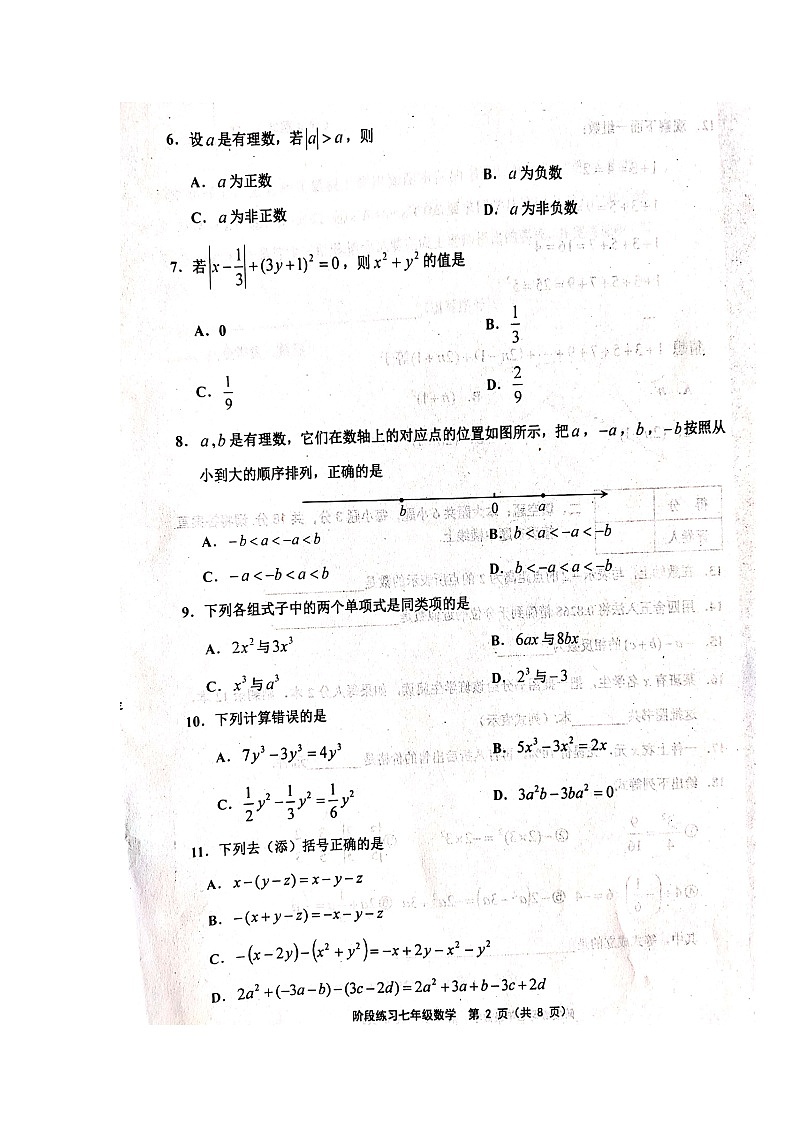 6. 设a是有理数，若|a|>a，则
A. a为正数
B. a为负数
C. a为非正数
D. a为非负数
7. 若|x-1/3|+(3y+1)²=0，则x²+y²的值是
A. 0
B. 1/3
C. 1/9
D. 2/9
8. a,b是有理数，它们在数轴上的对应点的位置如图所示，把a，-a，b，-b按照从
小到大的顺序排列，正确的是
b 0 a
A. -b<a<-a<b
B. b<a<-a<-b
C. -a<-b<a<b
D. b<-a<a<-b
9. 下列各组式子中的两个单项式是同类项的是
A. 2x²与3x³
B. 6ax与8bx
C. x³与a³
D. 2³与-3
10. 下列计算错误的是
A. 7y³-3y³=4y³
B. 5x³-3x²=2x
C. 1/2y²-1/3y²=1/6y²
D. 3a²b-3ba²=0
11. 下列去（添）括号正确的是
A. x-(y-z)=x-y-z
B. -(x+y-z)=-x-y-z
C. -(x-2y)-(x²+y²)=-x+2y-x²-y²
D. 2a²+(-3a-b)-(3c-2d)=2a²+3a+b-3c+2d
阶段练习七年级数学 第 2 页（共 8 页）